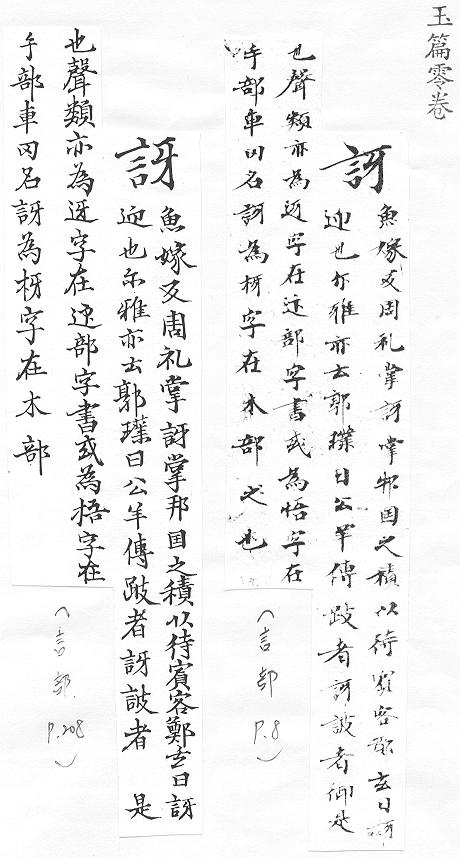 玉篇零卷
訝
魚嫁反周礼掌訝掌邦国之積以待賓客鄭玄曰訝
迎也尔雅亦云郭璞曰公羊傳跛者訝詖者御是
也聲類亦為迓字在辵部字書或為捂字在
手部車罔名訝為枒字在木部之也
(言部 P.8)
訝
魚嫁反周礼掌訝掌邦国之積以待賓客鄭玄曰訝
迎也尔雅亦云郭璞曰公羊傳跛者訝詖者 是
也聲類亦為迓字在辵部字書或為捂字在
手部車罔名訝為枒字在木部
(言部 P.208)